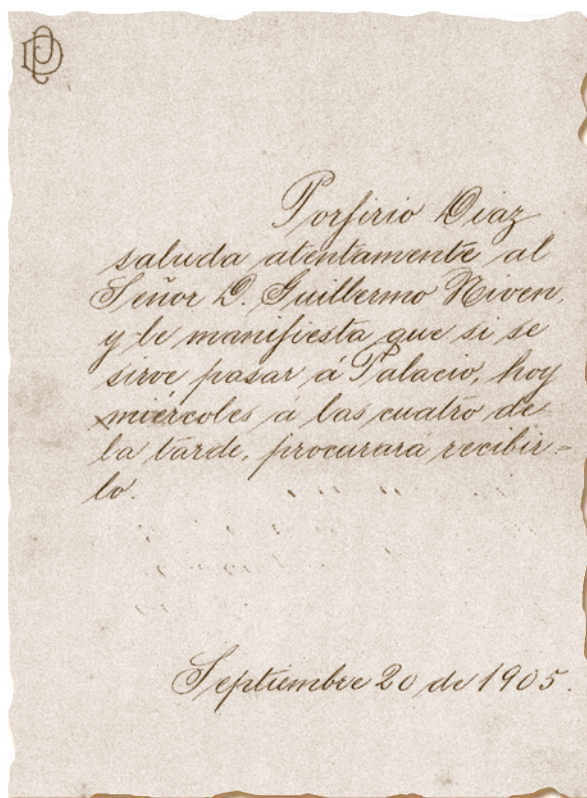 PD
Porfirio Diaz
saluda atentamente al
Señor D. Guillermo Niven,
y le manifiesta que si se
sirve pasar á Palacio, hoy
miércoles á las cuatro de
la tarde, procurará recibir-
lo.
Septiembre 20 de 1905.